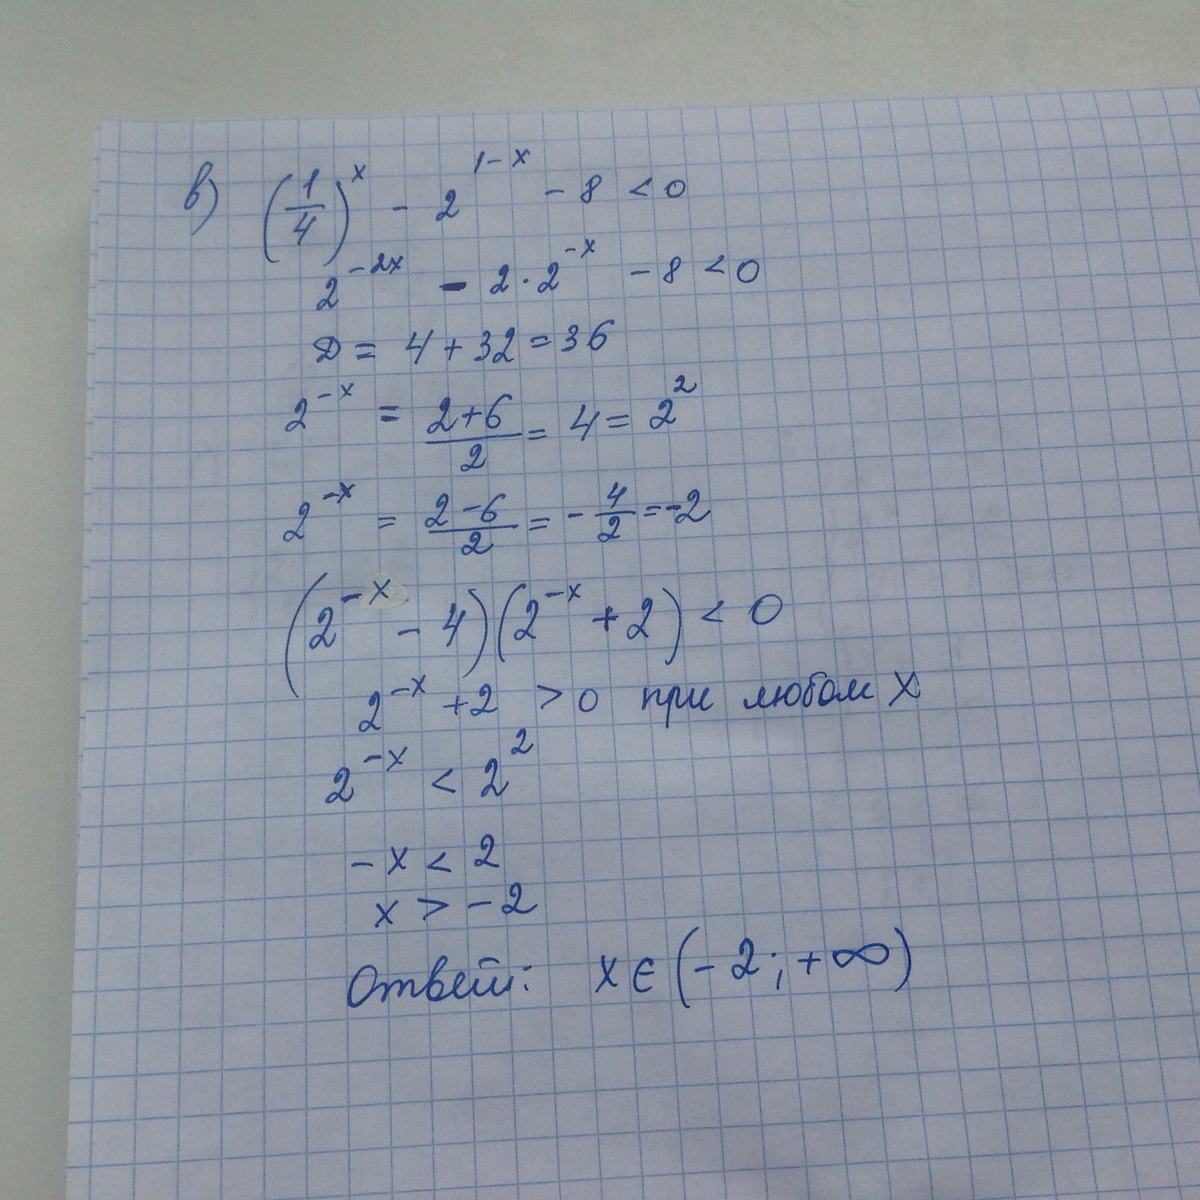 в) (1/4)^x - 2^(1-x) - 8 < 0
2^(-2x) - 2·2^(-x) - 8 < 0
D = 4 + 32 = 36
2^(-x) = (2+6)/2 = 4 = 2^2
2^(-x) = (2-6)/2 = -4/2 = -2
(2^(-x) - 4)(2^(-x) + 2) < 0
2^(-x) + 2 > 0 при любом x
2^(-x) < 2^2
-x < 2
x > -2
Ответ: x ∈ (-2; +∞)